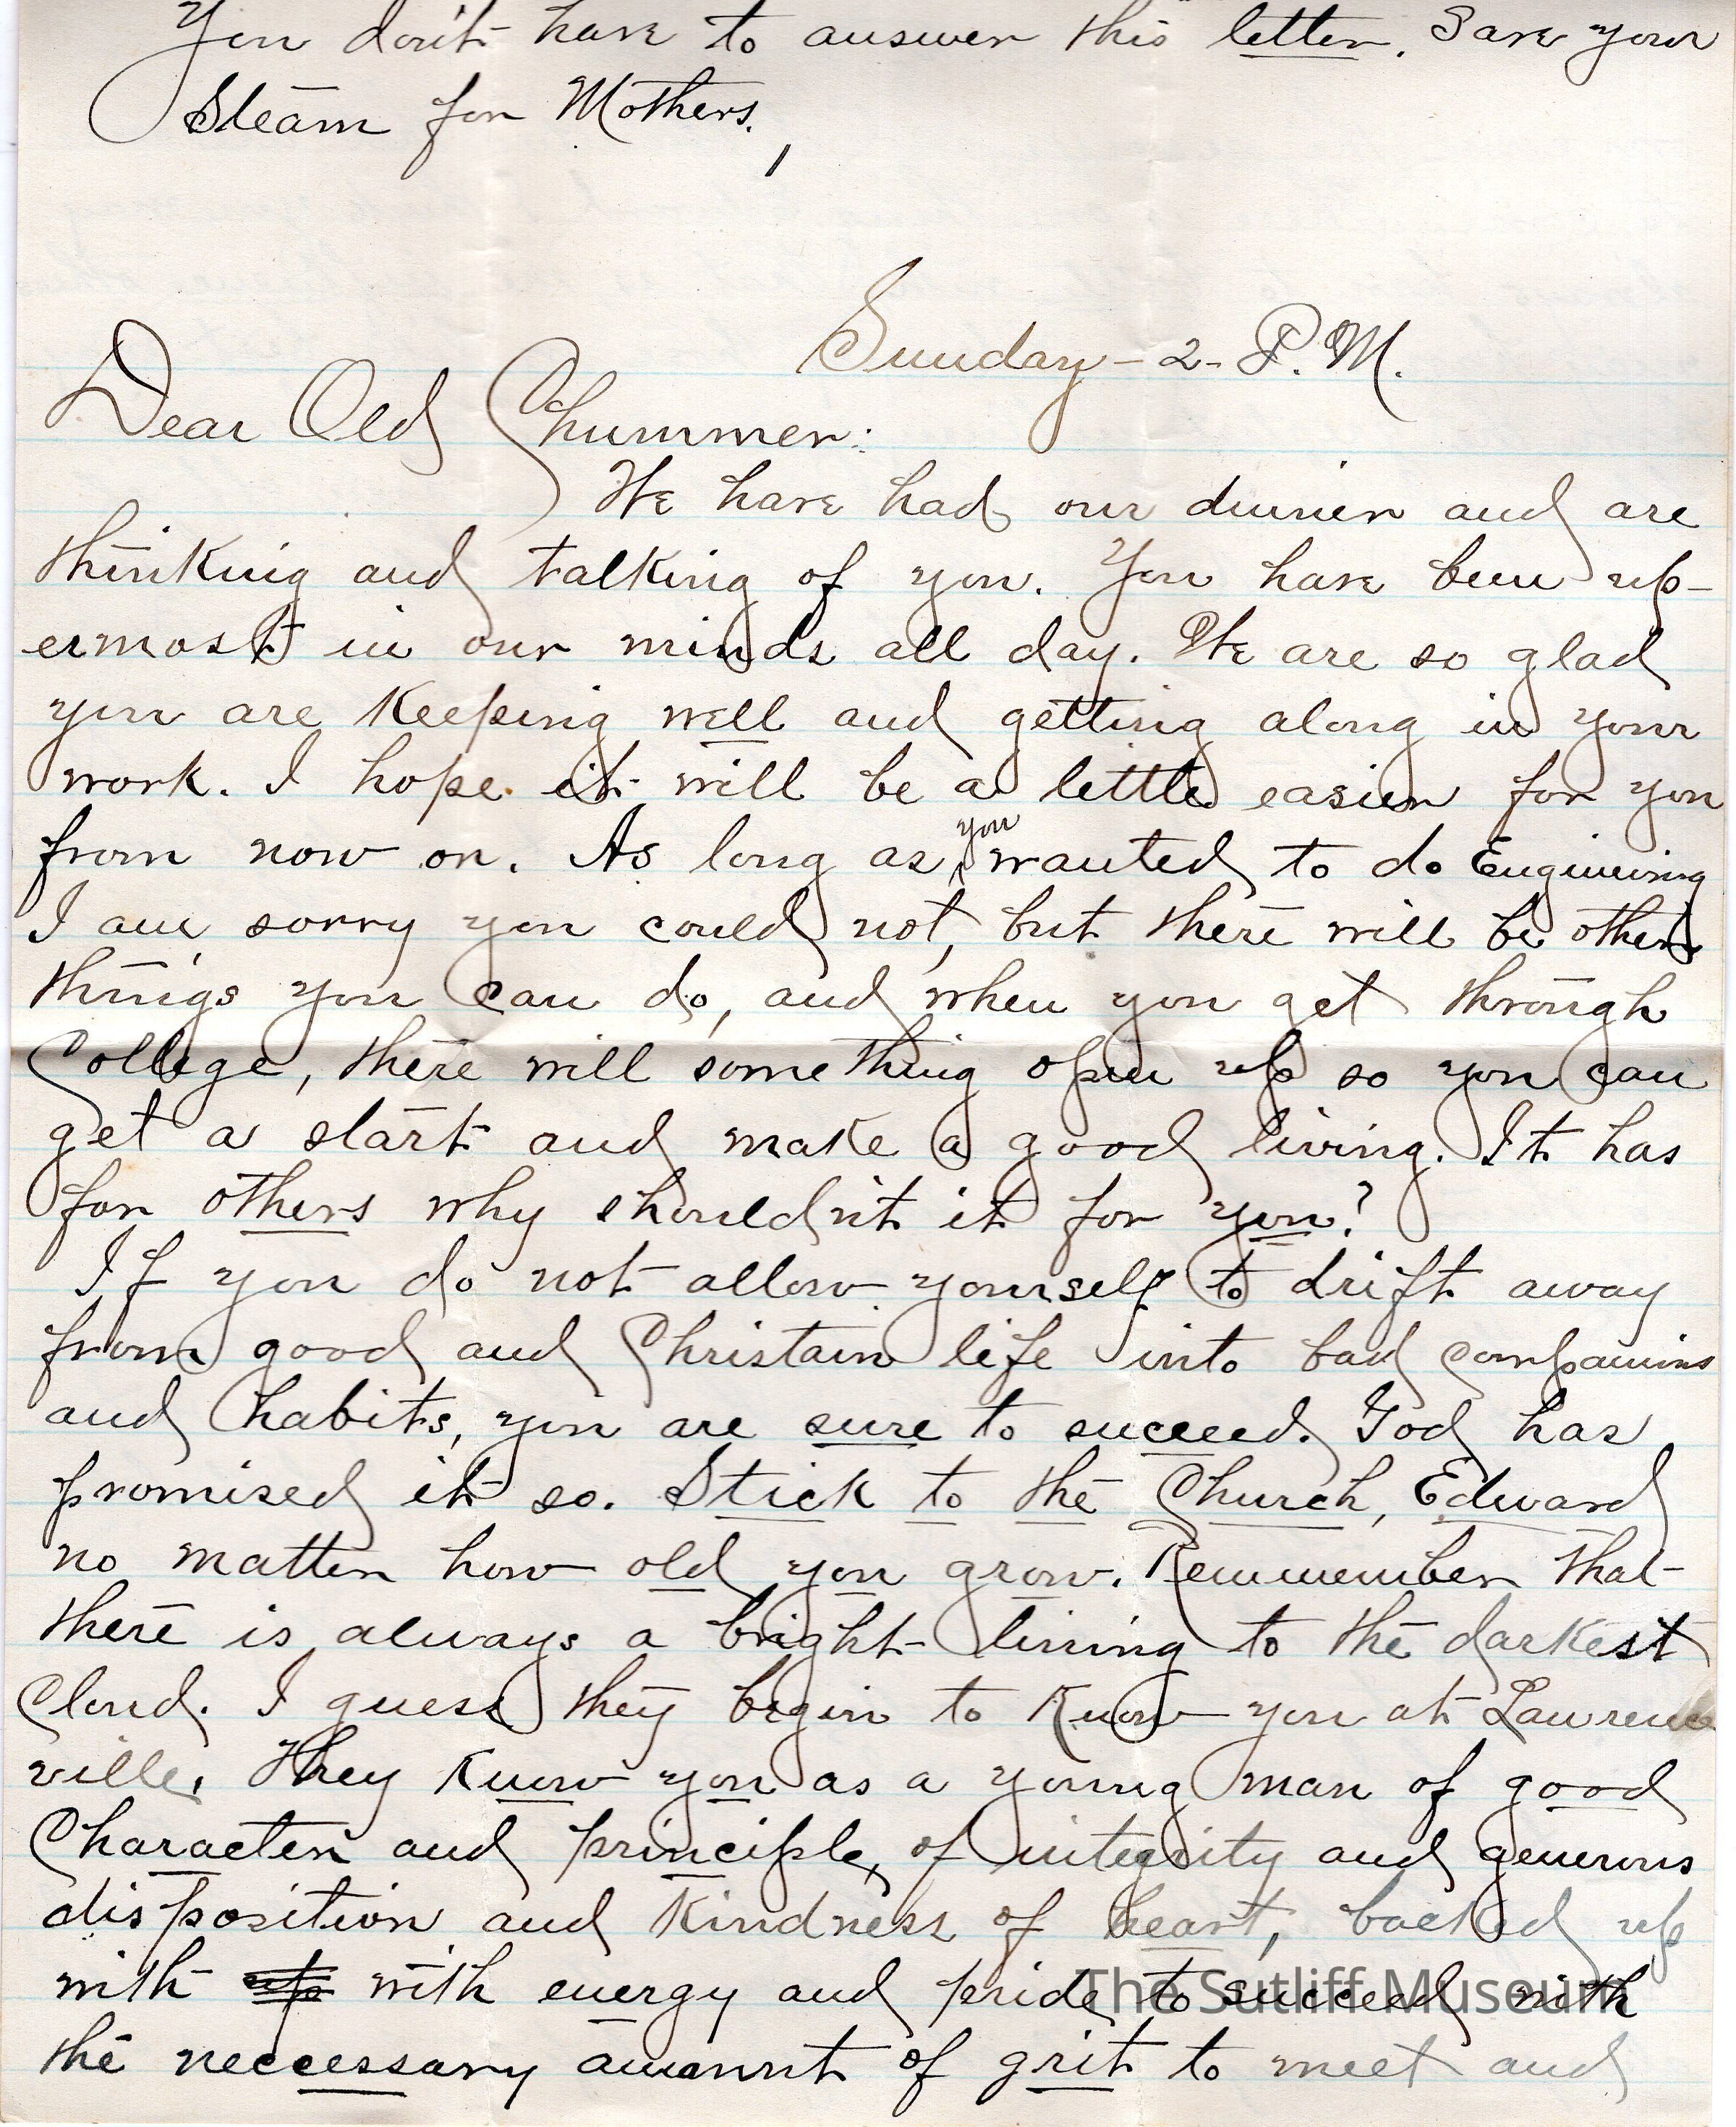 You don't have to answer this letter. Save your
Steam for Mothers.
Sunday - 2 - P.M.
Dear Old Chummer:
We have had our dinner and are
thinking and talking of you. You have been up-
ermost in our minds all day. We are so glad
you are keeping well and getting along in your
work. I hope it will be a little easier for you
from now on. As long as you wanted to do Engineering
I am sorry you could not, but there will be other
things you can do, and when you get through
College, there will something open up so you can
get a start and make a good living. It has
for others why should'nt it for you?
If you do not allow yourself to drift away
from good and Christain life into bad companions
and habits, you are sure to succeed. God has
promised it so. Stick to the Church, Edward
no matter how old you grow. Rememember that
there is always a bright lining to the darkest
Cloud. I guess they begin to know you at Lawrence
ville. They know you as a young man of good
Character and principle, of integrity and generous
disposition and kindness of heart, backed up
with up with energy and pride to succeed with
The Sutliff Museum
the neccessary amount of grit to meet and